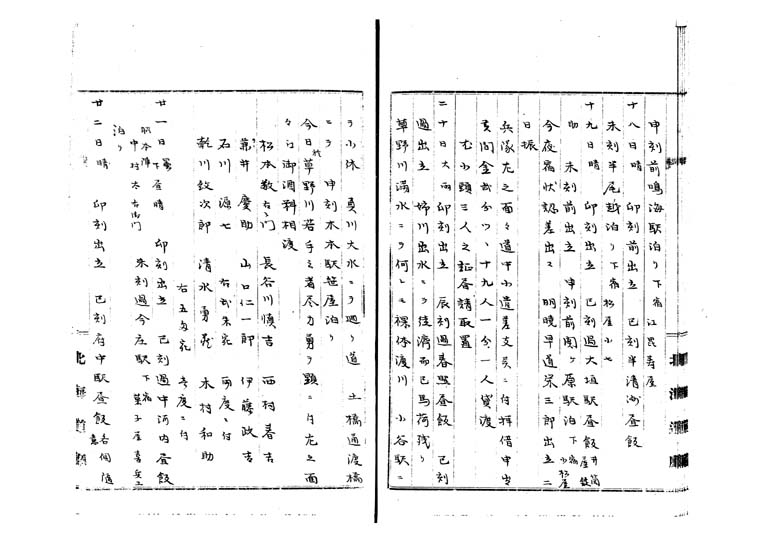 申刻前鳴海駅泊リ 下宿 江戸寿屋
十八日 晴 卯刻前出立 巳刻半清洲昼飯
未刻半尾越泊リ 下宿 松屋小七
十九日 晴 卯刻出立 巳刻過大垣駅昼飯 井筒屋
助 未刻前出立 申刻前関ヶ原駅泊 下宿 小松屋
今夜宿状認差出ス 明暁早道栄三郎出立ニ
日振
兵隊左之面々道中小遣差支ニ付拝借申出
貳間金貳分ツヽ十九人一分一人貸渡
尤小頭三人之証書請取置
二十日 大雨 卯刻出立 辰刻過春照昼飯 巳刻
過出立 姉川出水ニヨリ徒済而已馬荷残リ
草野川満水ニヨリ何レモ裸体渡川 小谷駅ニ
テ小休 勇川大水ニヨリ廻リ道 土橋通渡橋
ニヨリ 申刻木本駅笹屋泊リ
今日於草野川若手之者尽力勇リ顕ニ付左之面
々ニ御酒料相渡
松本数右衛門 長谷川慎吉 西村春吉
兼井慶助 山口仁一郎 伊藤政吉
石川源七 右貳朱宛 両度ニ付
乾川政次郎 清水勇蔵 木村和助
右五匁宛 壱度ニ付
廿一日 下昼晴 卯刻出立 巳刻過中河内昼飯
脇本陣 中村太右衛門 未刻過今庄駅 下宿 菓子屋喜兵ヱ
泊リ
廿二日 晴 卯刻出立 巳刻府中駅昼飯